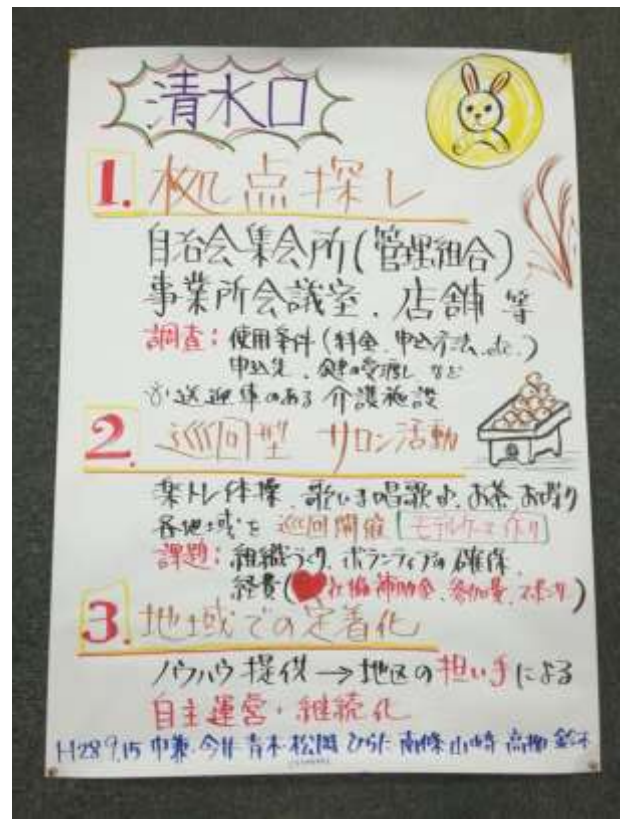 清水口
1. 拠点探し
自治会集会所(管理組合)
事業所会議室、店舗 等
調査: 使用条件(料金、申込方法、etc.)
申込先、鍵の受渡し など
送迎車のある 介護施設
2. 巡回型 サロン活動
楽トレ体操 歌いま唱歌 お茶 おしゃべり
各地域を 巡回開催 モデルケース作り
課題: 組織づくり、ボランティアの確保、
経費(♥社協補助金、参加費、スポンサー)
3. 地域での定着化
ノウハウ提供→地区の担い手による
自主運営・継続化
H28 9.15 中兼 今井 青木 松岡 ひらた 南條 山崎 高柳 鈴木